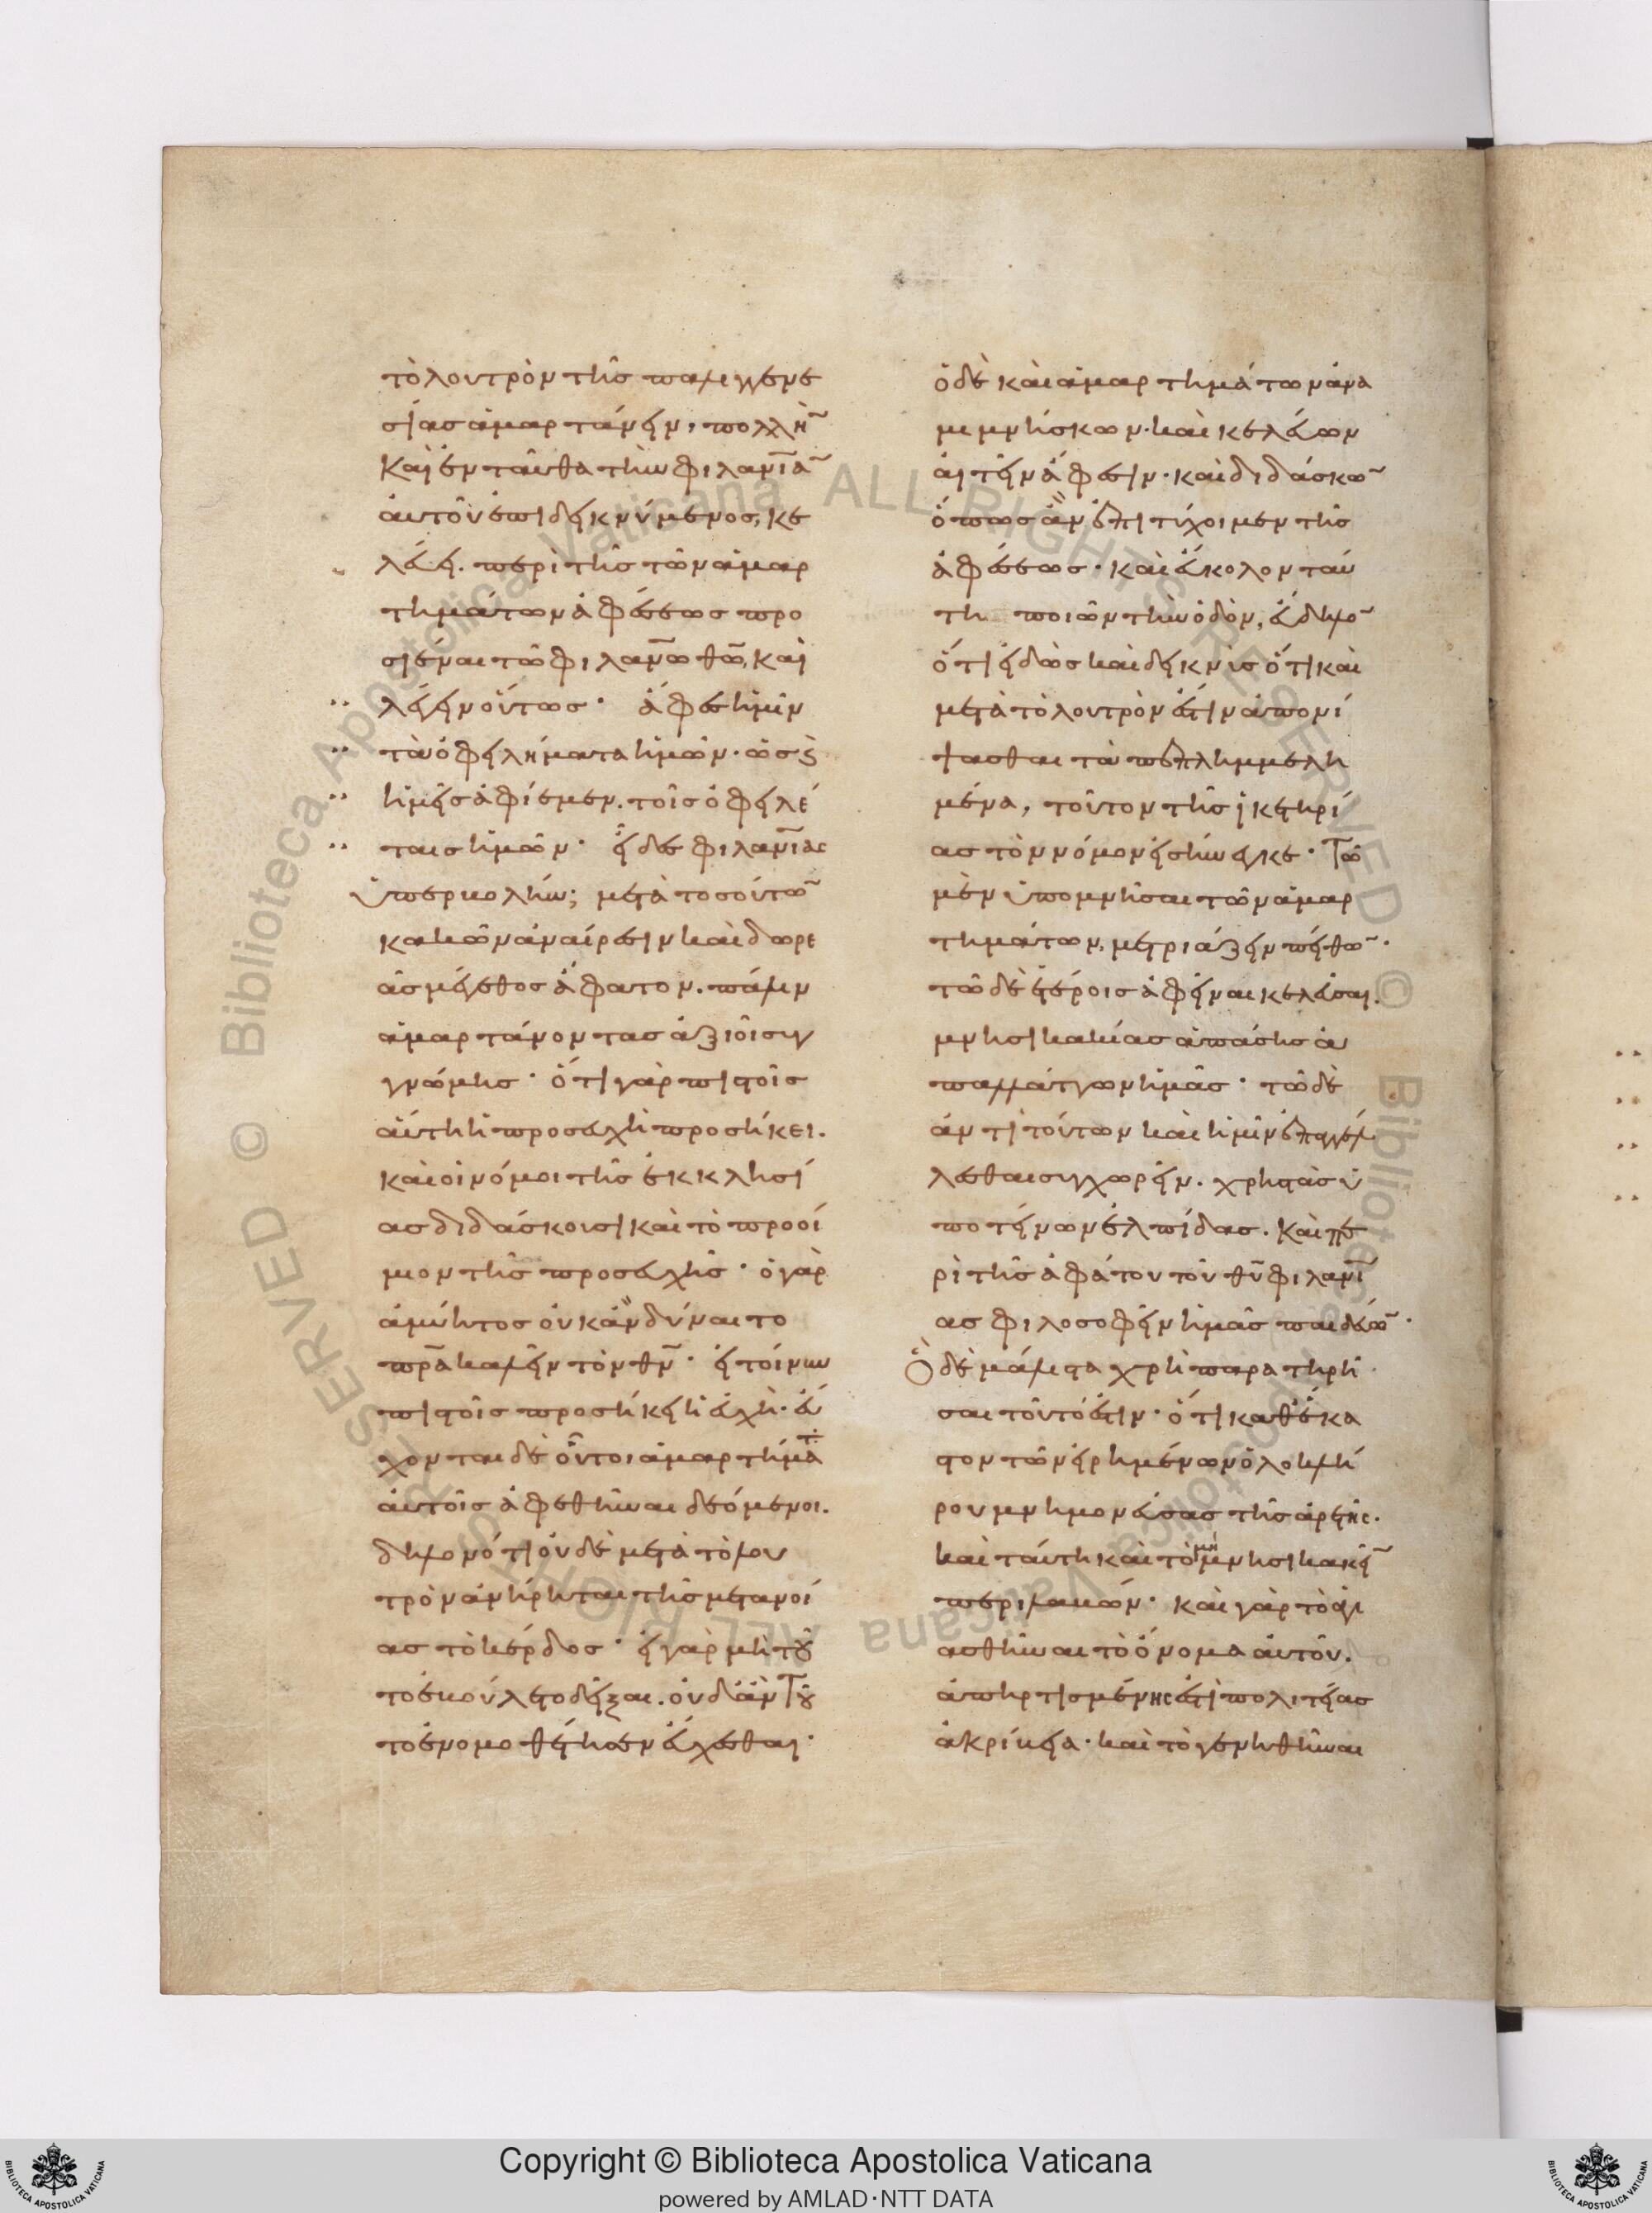 τὸ λουτρὸν τῆς παλιγγενε
σίας ἁμαρτάνειν, πολλὴ̄
Καὶ ἐνταῦθα τὴν φιλαν̅ίᾱ
αὐτοῦ ἐπιδεικνύμενος, κε
λεύει. περὶ τῆς τῶν ἁμαρ
τημάτων ἀφέσεως προ
σιέναι τῶ φιλαν̅ω θῶ̅, καὶ
λέγειν οὕτως· ἄφες ἡμῖν
τὰ ὀφειλήματα ἡμῶν. ὡς ϗ
ἡμεῖς ἀφίεμεν. τοῖς ὀφειλέ
ταις ἡμῶν· εἶδες φιλαν̅ίας
ὑπερβολήν; μετὰ τοσούτω̄
κακῶν ἀναίρεσιν καὶ δωρε
ᾶς μέγεθος ἄφατον. πάλιν
ἁμαρτάνοντας ἀξιοῖ συγ
γνώμης· ὅτι γὰρ πιστοῖς
αὕτη ἡ προσευχὴ προσήκει.
καὶ οἱ νόμοι τῆς ἐκκλησί
ας διδάσκουσι καὶ τὸ προοί
μιον τῆς προσευχῆς· ὁ γὰρ
ἀμύητος οὐκ ἂν δύναιτο
πρ̅α καλεῖν τὸν θν̅· εἰ τοίνυν
πιστοῖς προσήκει ἡ εὐχὴ. εὔ
χονται δὲ οὗτοι ἁμαρτήματ̣α
αὐτοῖς ἀφεθῆναι δεόμενοι.
δῆλον ὅτι οὐδὲ μετὰ τὸ λου
τρὸν ἀνήρηται τῆς μετανοί
ας τὸ κέρδος· εἰ γὰρ μὴ τοῦ
το ἐβούλετο δεῖξαι. οὐδ' ἂν τοῦ
το ἐνομοθέτησεν εὔχεσθαι·
ὁ δὲ καὶ ἁμαρτημάτων ἀνα
μιμνήσκων. καὶ κελεύων
αἰτεῖν ἄφεσιν. καὶ διδάσκω̄
ὅπως ἂν ἐπιτύχοιμεν τῆς
ἀφέσεως. καὶ εὔκολον ταύ
τη ποιῶν τὴν ὁδὸν, εὔδηλο̄
ὅτι εἰδὼς καὶ δεικνὺς ὅτι καὶ
μετὰ τὸ λουτρὸν ἔστιν ἀπονί
ψασθαι τὰ πεπλημμελη
μένα, τοῦτον τῆς ἱκετηρί
ας τὸν νόμον εἰσήνεγκε· Τῶ
μὲν ὑπομνῆσαι τῶν ἁμαρ
τημάτων, μετριάζειν πείθω̄.
τῶ δὲ ἑτέροις ἀφεῖναι κελεῦσαι.
μνησικακίας ἁπάσης ἀ
παλλάττων ἡμᾶς· τῶ δὲ
ἀντὶ τούτων καὶ ἡμῖν ἐπαγγέλ
λεσθαι συγχωρεῖν. χρηστὰς ὑ
ποτείνων ἐλπίδας. Καὶ πε
ρὶ τῆς ἀφάτου τοῦ θυ̅ φιλαν̅ί
ας φιλοσοφεῖν ἡμᾶς παιδεύω̄·
Ὃ δὲ μάλιστα χρὴ παρατηρῆ
σαι τοῦτό ἐστιν· ὅτι καθ' ἕκα
στον τῶν εἰρημένων ὁλοκλή
ρου μνημονεύσας τῆς ἀρετῆς.
καὶ ταύτη καὶ τὸ μὴ μνησικακεῖ̄
περιλαβών· καὶ γὰρ τὸ ἁγι
ασθῆναι τὸ ὄνομα αὐτοῦ.
ἀπηρτισμένης ἐστὶ πολιτείας
ἀκρίβεια. καὶ τὸ γενηθῆναι
Copyright © Biblioteca Apostolica Vaticana
powered by AMLAD·NTT DATA